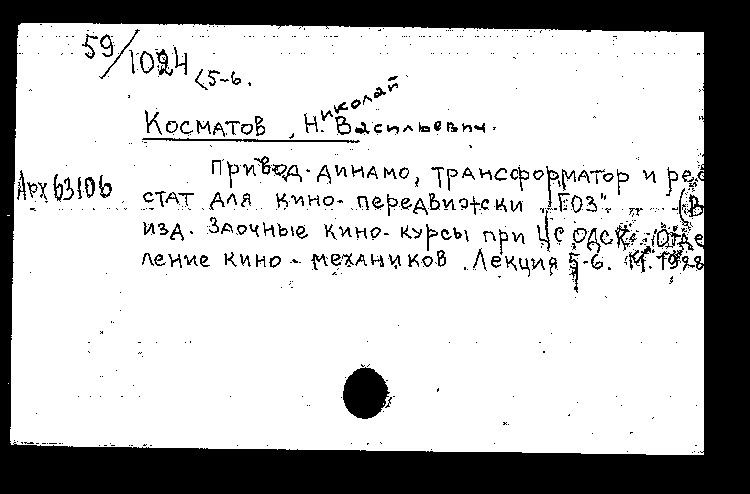 59/1024 <5-6.
Косматов, Николай Васильевич.
Привод-динамо, трансформатор и рео
Арх 63106
стат для кино-передвижски "ГОЗ". - (В
изд. Заочные кино-курсы при ЦС ОДСК. Отде
ление кино-механиков. Лекция 5-6. М. 1928